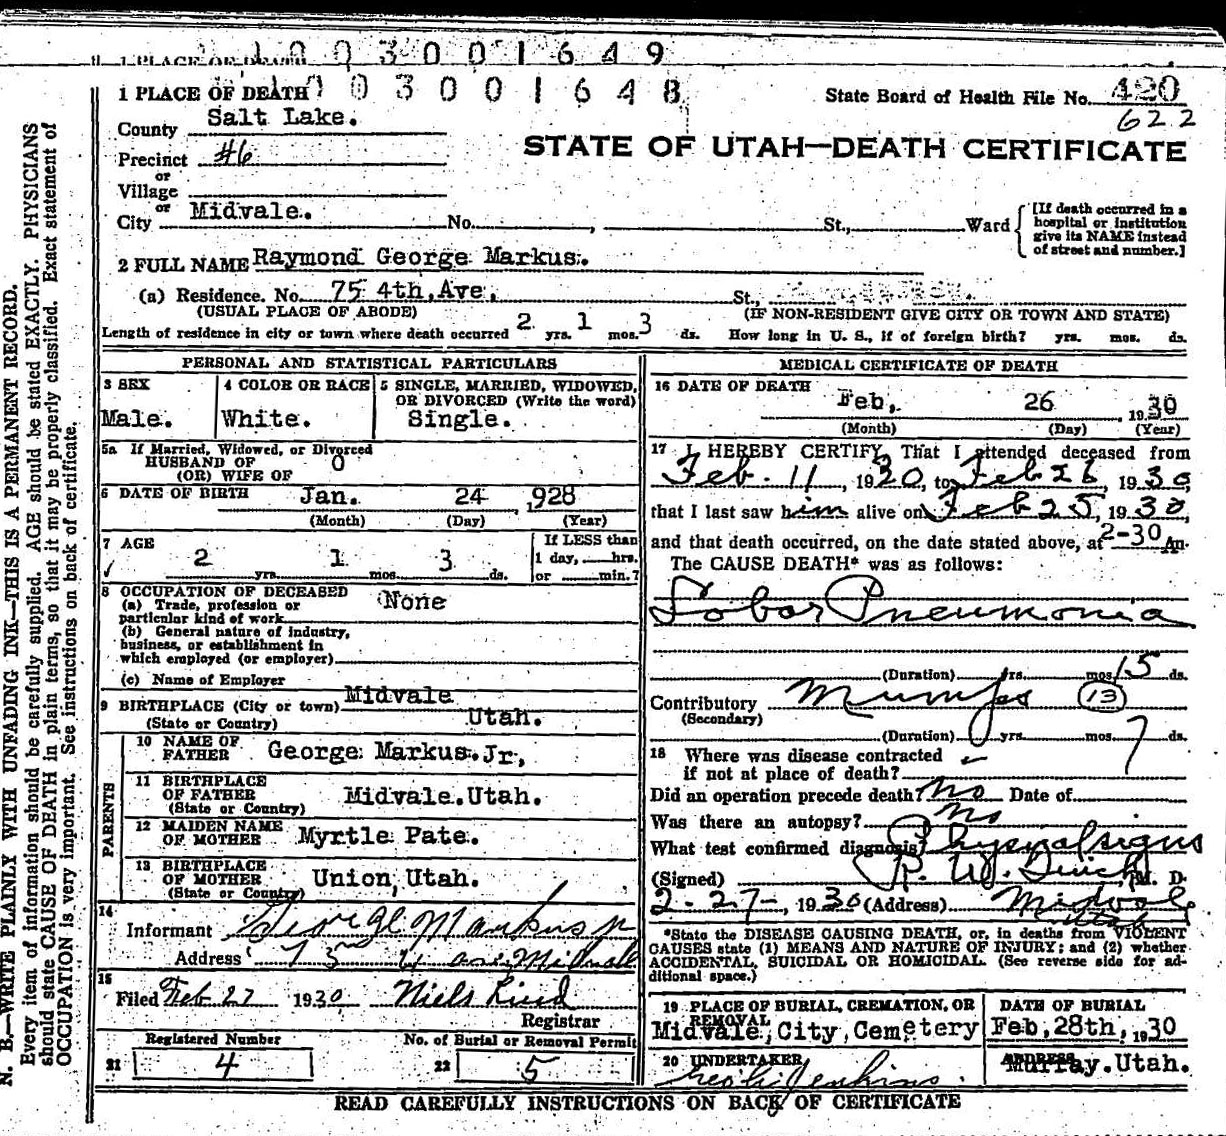 1 PLACE OF DEATH 0 0 3 0 0 1 6 4 9
1 PLACE OF DEATH 0 0 3 0 0 1 6 4 8
State Board of Health File No. 420
622
County Salt Lake.
STATE OF UTAH—DEATH CERTIFICATE
Precinct #6
or
Village
or
City Midvale. No. , St., Ward
[If death occurred in a hospital or institution give its NAME instead of street and number.]
2 FULL NAME Raymond George Markus.
(a) Residence. No. 75 4th, Ave, St.,
(USUAL PLACE OF ABODE) (IF NON-RESIDENT GIVE CITY OR TOWN AND STATE)
Length of residence in city or town where death occurred 2 yrs. 1 mos. 3 ds. How long in U. S., if of foreign birth? yrs. mos. ds.
PERSONAL AND STATISTICAL PARTICULARS
3 SEX 4 COLOR OR RACE 5 SINGLE, MARRIED, WIDOWED, OR DIVORCED (Write the word)
Male. White. Single.
5a If Married, Widowed, or Divorced
HUSBAND OF 0
(OR) WIFE OF
6 DATE OF BIRTH Jan. 24 ,928
(Month) (Day) (Year)
7 AGE If LESS than
2 1 3 1 day, hrs.
yrs. mos. ds. or min.?
8 OCCUPATION OF DECEASED None
(a) Trade, profession or
particular kind of work
(b) General nature of industry,
business, or establishment in
which employed (or employer)
(c) Name of Employer
9 BIRTHPLACE (City or town) Midvale
(State or Country) Utah.
PARENTS
10 NAME OF FATHER George Markus.Jr,
11 BIRTHPLACE OF FATHER (State or Country) Midvale.Utah.
12 MAIDEN NAME OF MOTHER Myrtle Pate.
13 BIRTHPLACE OF MOTHER (State or Country) Union,Utah.
14
Informant George Markus Jr
Address 75 4 ave Midvale
15
Filed Feb 27 1930 Niels Lind
Registrar
Registered Number No. of Burial or Removal Permit
21 4 22 5
MEDICAL CERTIFICATE OF DEATH
16 DATE OF DEATH
Feb, 26 1930
(Month) (Day) (Year)
17 I HEREBY CERTIFY, That I attended deceased from
Feb. 11, 1930, to Feb 26, 1930,
that I last saw him alive on Feb 25, 1930,
and that death occurred, on the date stated above, at 2-30 Am.
The CAUSE DEATH* was as follows:
Lobar Pneumonia
(Duration) yrs. mos. 15 ds.
Contributory Mumps 13
(Secondary)
(Duration) yrs. mos. 7 ds.
18 Where was disease contracted
if not at place of death?
Did an operation precede death? No Date of
Was there an autopsy? No
What test confirmed diagnosis? Physical signs
(Signed) R. W. M. D.
2-27-, 1930 (Address) Midvale
Utah
*State the DISEASE CAUSING DEATH, or, in deaths from VIOLENT
CAUSES state (1) MEANS AND NATURE OF INJURY; and (2) whether
ACCIDENTAL, SUICIDAL OR HOMICIDAL. (See reverse side for ad-
ditional space.)
19 PLACE OF BURIAL, CREMATION, OR REMOVAL DATE OF BURIAL
Midvale,City,Cemetery Feb,28th, 1930
20 UNDERTAKER ADDRESS
Jenkins. Murray.Utah.
READ CAREFULLY INSTRUCTIONS ON BACK OF CERTIFICATE
N. B.—WRITE PLAINLY WITH UNFADING INK—THIS IS A PERMANENT RECORD.
Every item of information should be carefully supplied. AGE should be stated EXACTLY. PHYSICIANS
should state CAUSE OF DEATH in plain terms, so that it may be properly classified. Exact statement of
OCCUPATION is very important. See instructions on back of certificate.